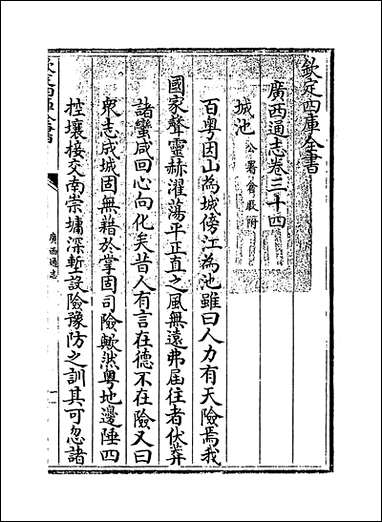 欽定四庫全書
廣西通志卷三十四
城池 公署倉廒附
百粤因山為城傍江為池雖曰人力有天險焉我
國家聲靈赫濯蕩平正直之風無遠弗届往者伏莽
諸蠻咸回心向化矣昔人有言在德不在險又曰
衆志成城固無藉於掌固司險歟然粤地邊陲四
控壤接交南崇墉深塹設險豫防之訓其可忽諸
廣西通志